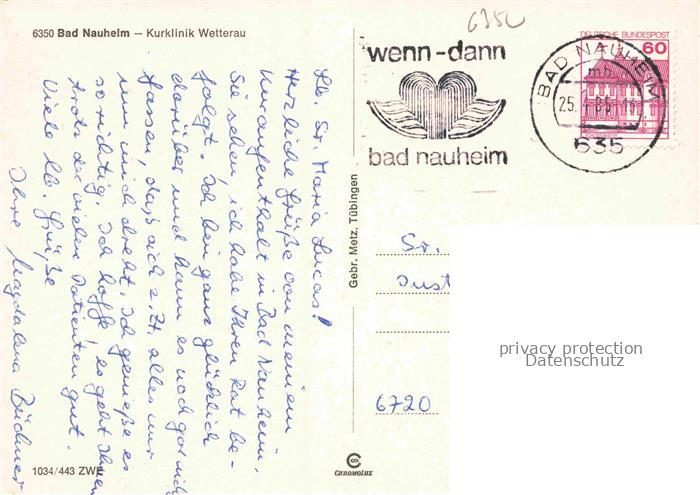 6350
6350 Bad Nauheim – Kurklinik Wetterau
wenn-dann
bad nauheim
BAD NAUHEIM
mb
25.4.85-18
635
DEUTSCHE BUNDESPOST
60
Lb. Sr. Maria Lucas!
Herzliche Grüße von meinem
Kuraufenthalt in Bad Nauheim.
Sie sehen, ich habe Ihren Rat be-
folgt. Ich bin ganz glücklich
darüber und kann es noch gar nicht
fassen, daß sich z. Zt. alles nur
um mich dreht. Ich genieße es
so richtig. Ich hoffe, es geht Ihnen
trotz der vielen Patienten gut.
Viele lb. Grüße
Ihre Magdalena Büchner
Gebr. Metz, Tübingen
Sr.
Inst
6720
privacy protection
Datenschutz
1034/443 ZWE
CHROMOLUX